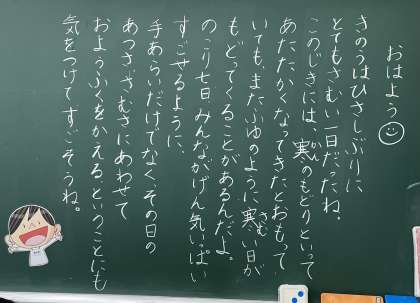 おはよう
きのうはひさしぶりに
とてもさむい一日だったね。
このじきには、寒のもどりといって
かん
あたたかくなってきたとおもって
いても、またふゆのように寒い日が
さむ
もどってくることがあるんだよ。
のこり七日みんながげん気いっぱい
すごせるように、
手あらいだけでなく、その日の
あつさ、さむさにあわせて
およふくをかえるということにも
気をつけてすごそうね。